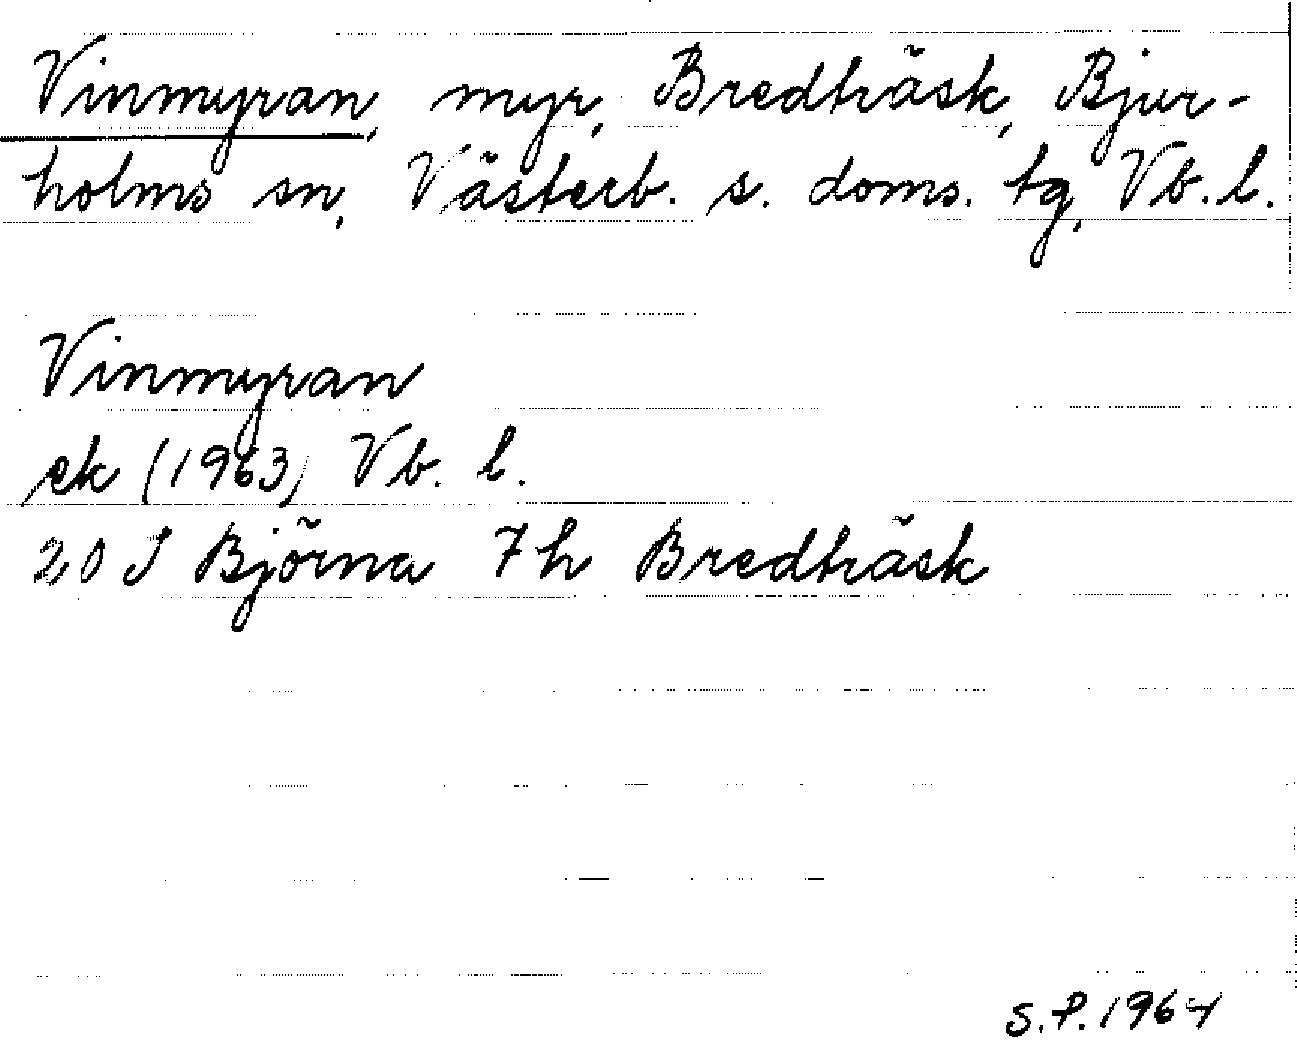 Vinmyran, myr, Bredträsk, Bjur-
holms sn, Västerb. s. doms. tg, Vb. l.
Vinmyran
ek (1963) Vb. l.
20 J Björna 7 h Bredträsk
S.P. 1964